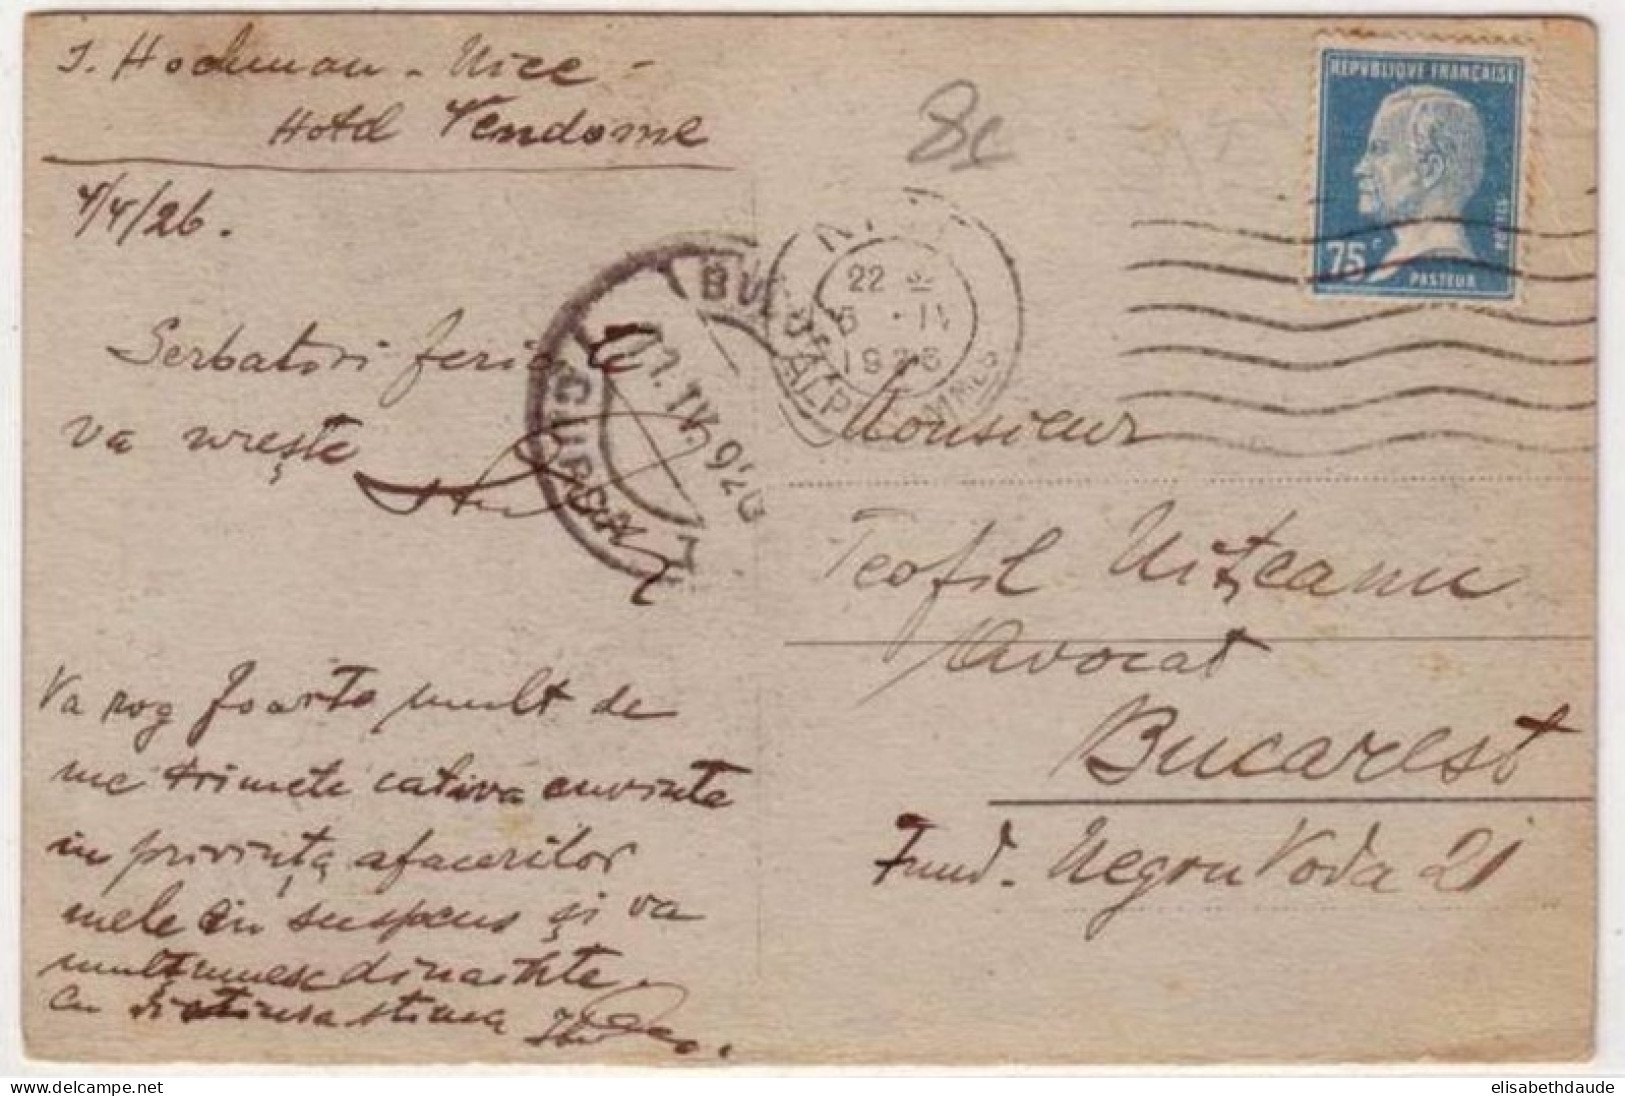 J. Hochman - Nice -
Hotel Vendome
4/4/26.
Serbatori fericite
va ureşte
Va rog foarte mult de
me trimete cativa cuvinte
in privinţa afacerilor
mele in suspens şi va
mulţumesc dinainte.
Cu distinsa stima
8c
REPUBLIQUE FRANÇAISE
75c
PASTEUR
POSTES
22
5 · IV
1926
ALPES MMES
BUCUREŞTI
CURSA
11. IV. 926
Monsieur
Teofil Niţeanu
Avocat
Bucarest
Fund. Negru Voda 21
delcampe.net
elisabethdaude